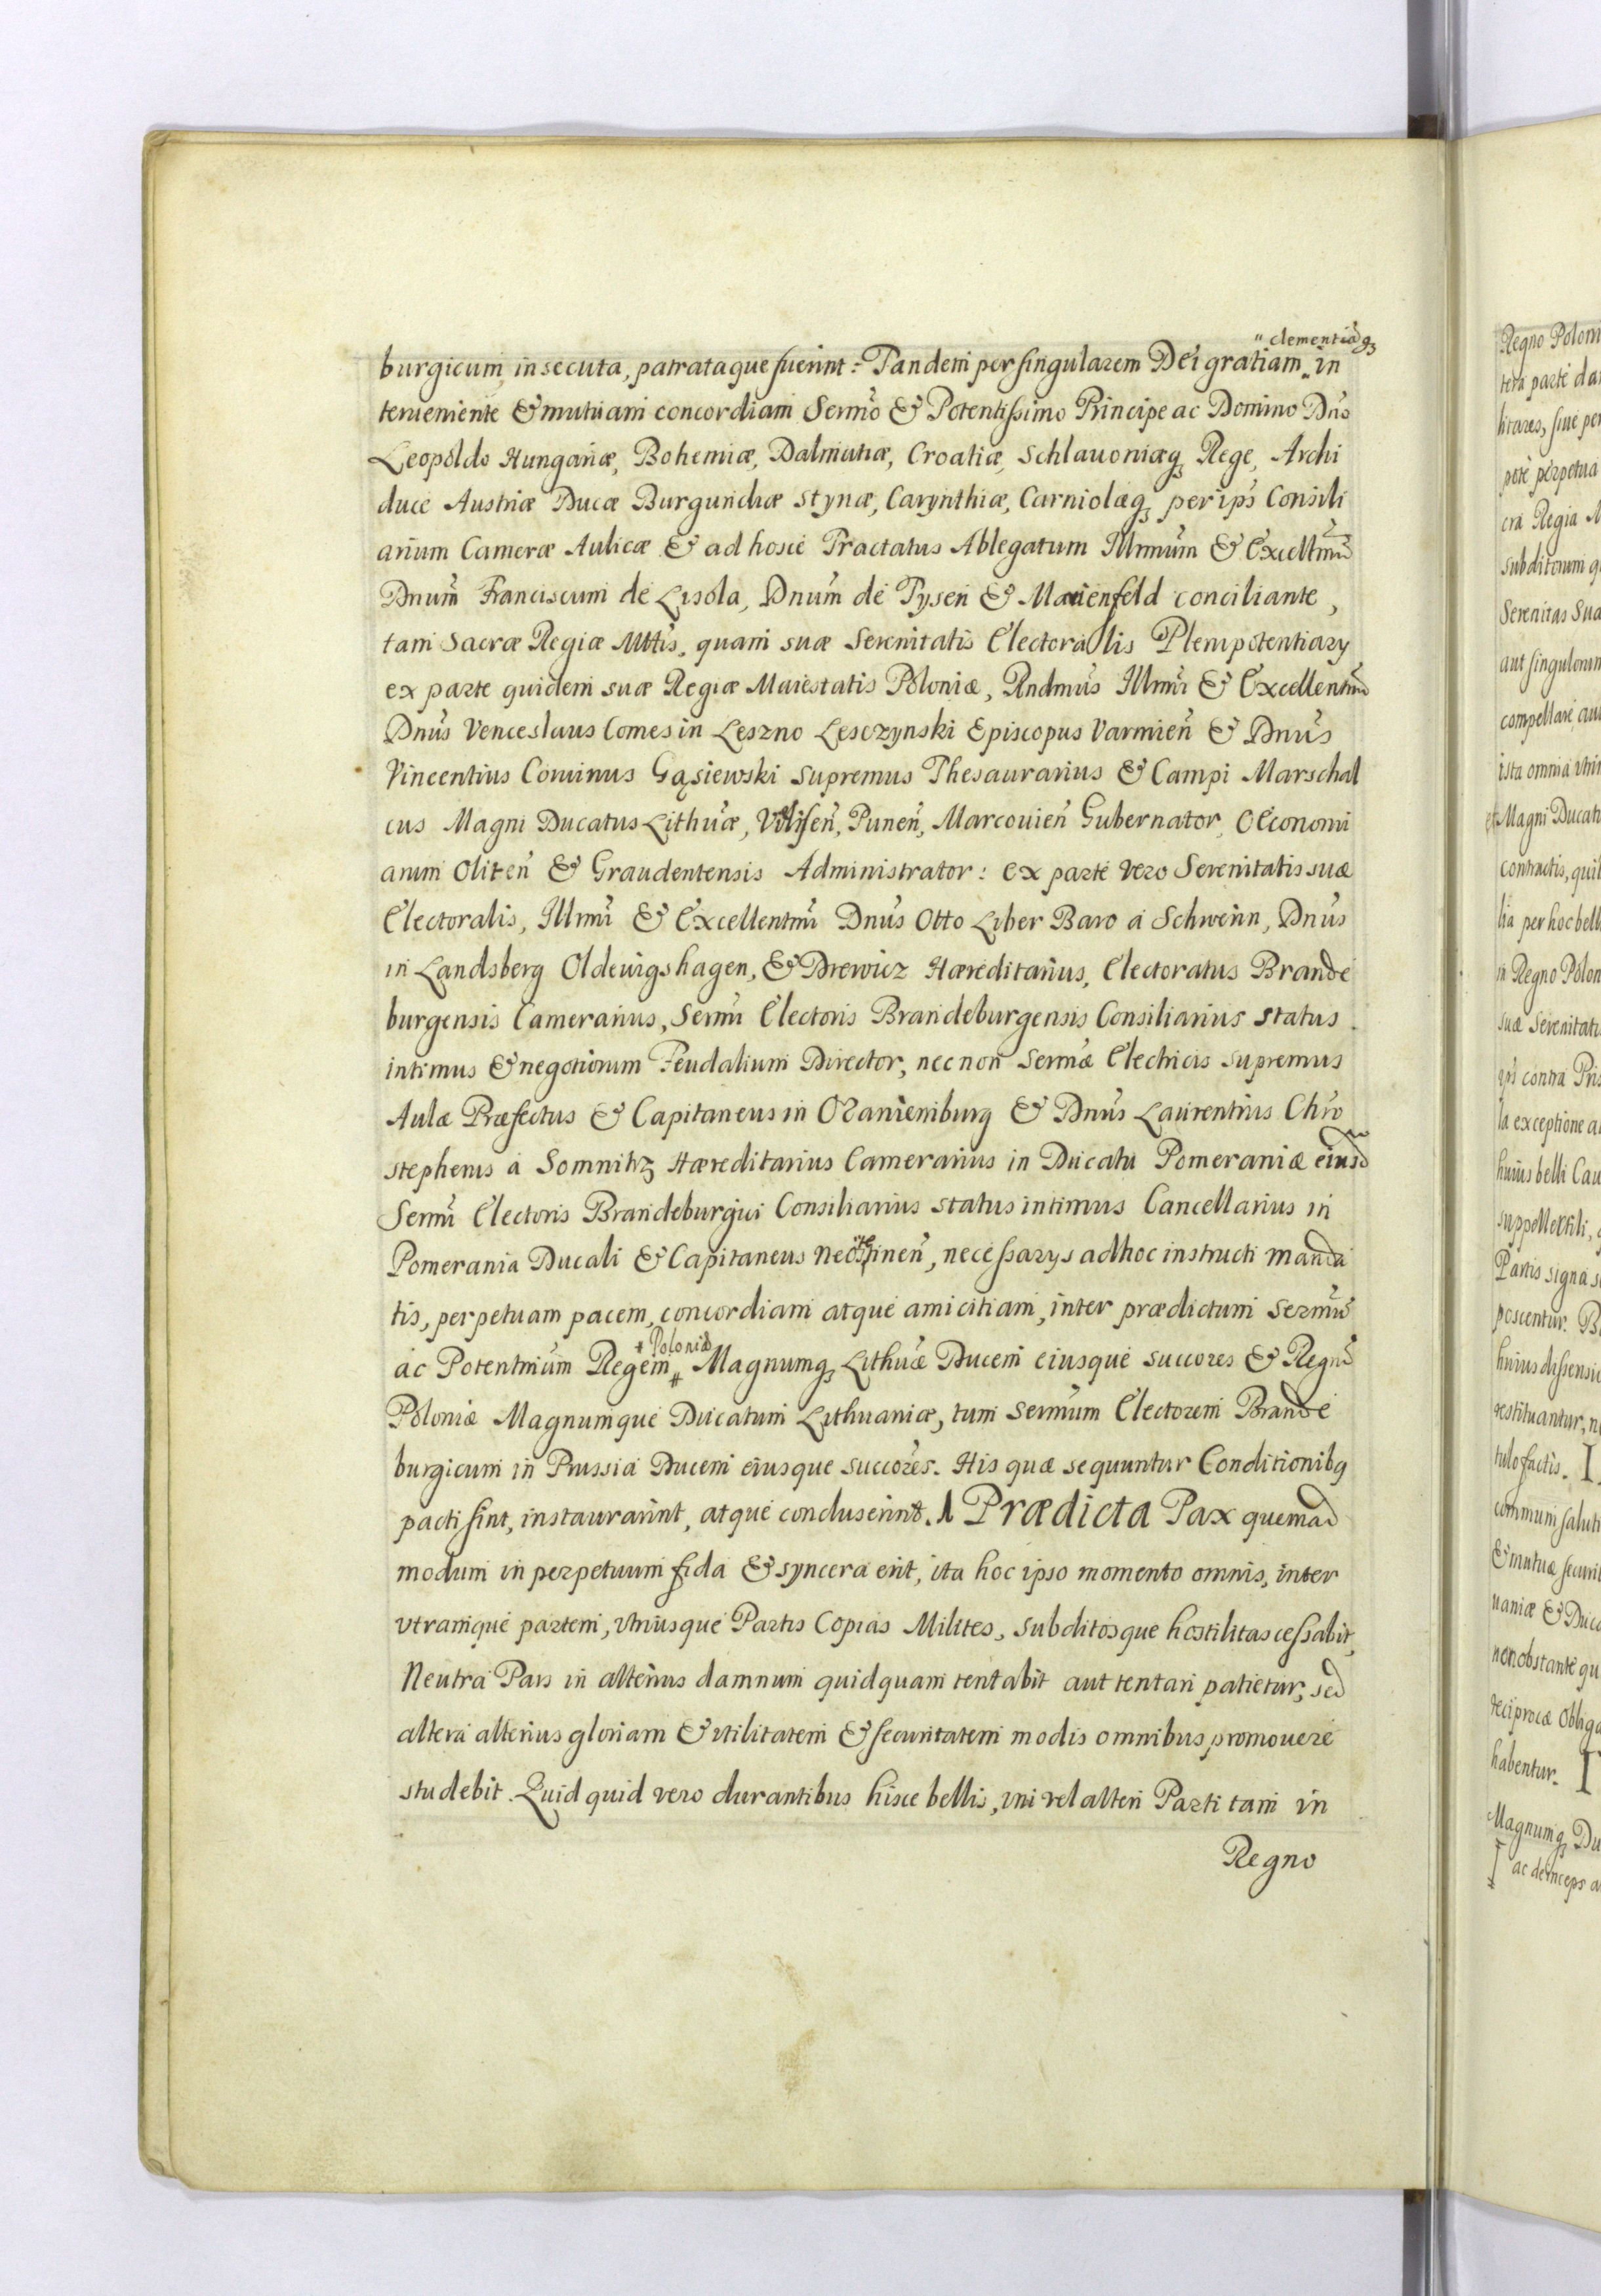 burgicum insecuta, patrataque fuerint: Tandem per singularem Dei gratiam „ clementiāq₃ in
terueniente & mutuam concordiam Sermo & Potentissimo Principe ac Domino Dno
Leopoldo Hungariæ, Bohemiæ, Dalmatiæ, Croatiæ, Schlauoniæq₃ Rege, Archi
duce Austriæ Ducæ Burgundiæ Styriæ, Carynthiæ, Carniolæq₃ per ips Consili
arium Cameræ Aulicæ & ad hosce Tractatus Ablegatum Illmum & Excellmū
Dnum Franciscum de Lisola, Dnum de Tysen & Marienfeld conciliante,
tam Sacræ Regiæ Mttis, quam suæ Serenitatis Electoralis Plenipotentiary
ex parte quidem suæ Regiæ Maiestatis Poloniæ, Rndmus Illmi & Excellentmi
Dnus Venceslaus Comes in Leszno Lesczynski Episcopus Varmien & Dnus
Vincentius Corvinus Gąsiewski Supremus Thesaurarius & Campi Marschal
cus Magni Ducatus Lithuæ, Punen, Marcouien Gubernator, Oeconomi
arum Oliten & Graudentensis Administrator: ex parte vero Serenitatis suæ
Electoralis, Illmi & Excellentmi Dnus Otto Liber Baro a Schwerin, Dnus
in Landsberg Oldewigshagen, & Drewicz Hæreditarius, Electoratus Brande
burgensis Camerarius, Sermi Electoris Brandeburgensis Consiliarius status
intimus & negotiorum Feudalium Director, nec non Sermæ Electricis supremus
Aulæ Præfectus & Capitaneus in Oranieniburg & Dnus Laurentius Chro
stephenis a Somnitz Hæreditarius Camerarius in Ducatu Pomeraniæ eiusd
Sermi Electoris Brandeburgici Consiliarius status intimus Cancellarius in
Pomerania Ducali & Capitaneus necessarys ad hoc instructi manda
tis, perpetuam pacem, concordiam atque amicitiam, inter prædictum Sermū
ac Potentmum Regem Poloniæ Magnumq₃ Lithuæ Ducem eiusque succores & Regnū
Poloniæ Magnumque Ducatum Lithuaniæ, tum Sermum Electorem Brande
burgicum in Prussia Ducem eiusque succores. His quæ sequuntur Conditionibq
pacti sint, instaurarint, atque concluserint. Prædicta Pax quemad
modum in perpetuum fida & syncera erit, ita hoc ipso momento omnis, inter
vtramque partem, vtriusque Partis Copias Milites, subditosque hostilitas cessabit,
Neutra Pars in alterius damnum quidquam tentabit aut tentari patietur, sed
altera alterius gloriam & vtilitatem & securitatem modis omnibus promouere
studebit. Quidquid vero durantibus hisce bellis, vni vel alteri Parti tam in
Regno